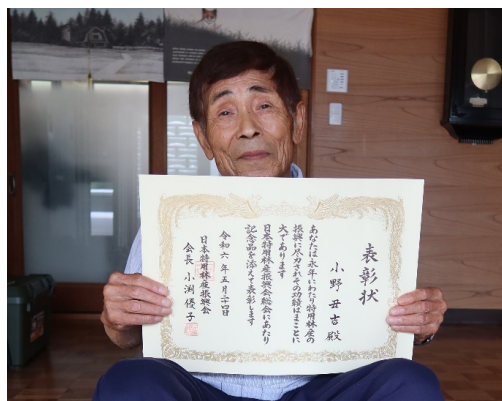 表彰状
小野丑吉殿
あなたは永年にわたり特用林産の
振興に尽力されその功績はまことに
大であります
日本特用林産振興会総会にあたり
記念品を添えて表彰します
令和六年五月二十四日
日本特用林産振興会
会長 小渕優子